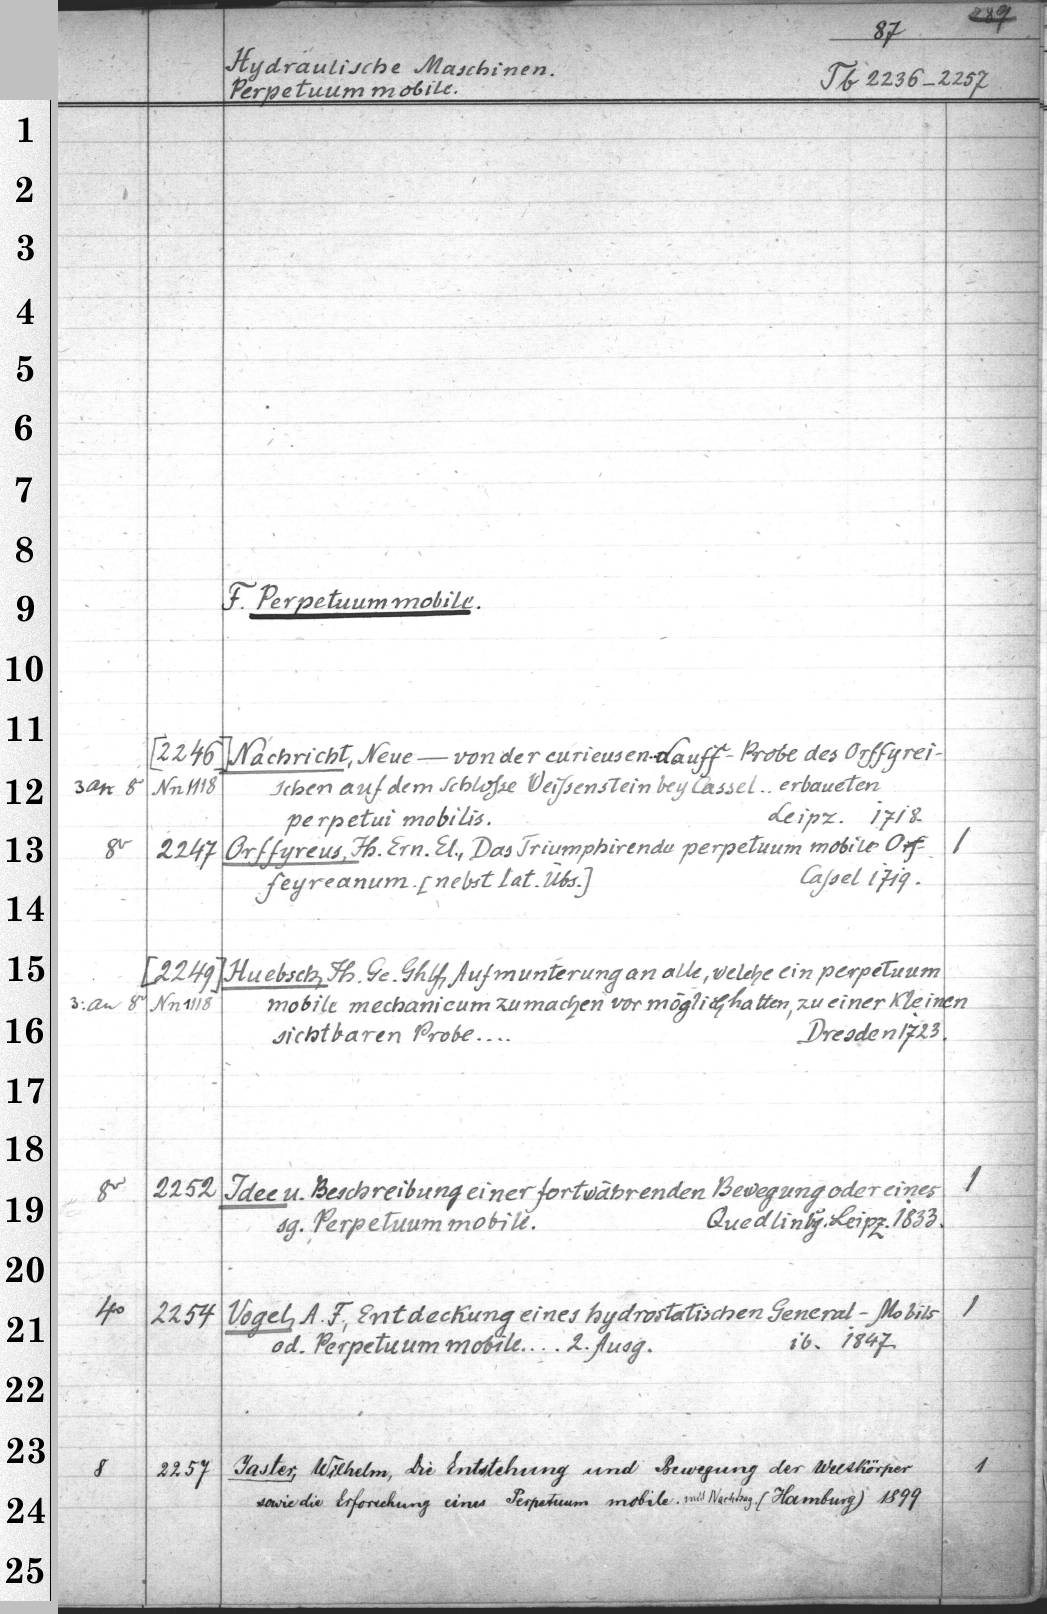 87 289
Hydraulische Maschinen.
Perpetuum mobile. Tb 2236–2257
1
2
3
4
5
6
7
8
9 F. Perpetuum mobile.
10
11
[2246] Nachricht, Neue — von der curieusen Lauff-Probe des Orffyrei-
12 3 an 8 Nn 1118 schen auf dem Schlosse Weissenstein bey Cassel .. erbaueten
perpetui mobilis. Leipz. 1718.
13 8v 2247 Orffyreus, Jh. Ern. El., Das Triumphirende perpetuum mobile Orf- 1
feyreanum. [nebst Lat. Übs.] Cassel 1719.
14
15 [2249] Huebsch, Jh. Ge. Ghlf, Aufmunterung an alle, welche ein perpetuum
3: an 8v Nn 1118 mobile mechanicum zu machen vor möglich hatten, zu einer kleinen
16 sichtbaren Probe .... Dresden 1723.
17
18
8v 2252 Idee u. Beschreibung einer fortwährenden Bewegung oder eines 1
19 sg. Perpetuum mobile. Quedlinbg. Leipz. 1833.
20
4o 2254 Vogel, A. F., Entdeckung eines hydrostatischen General-Mobils 1
21 od. Perpetuum mobile .... 2. Ausg. ib. 1847.
22
23
8 2257 Jaster, Wilhelm, Die Entstehung und Bewegung der Weltkörper 1
24 sowie die Erforschung eines Perpetuum mobile. mit Nachtrag. (Hamburg) 1899
25